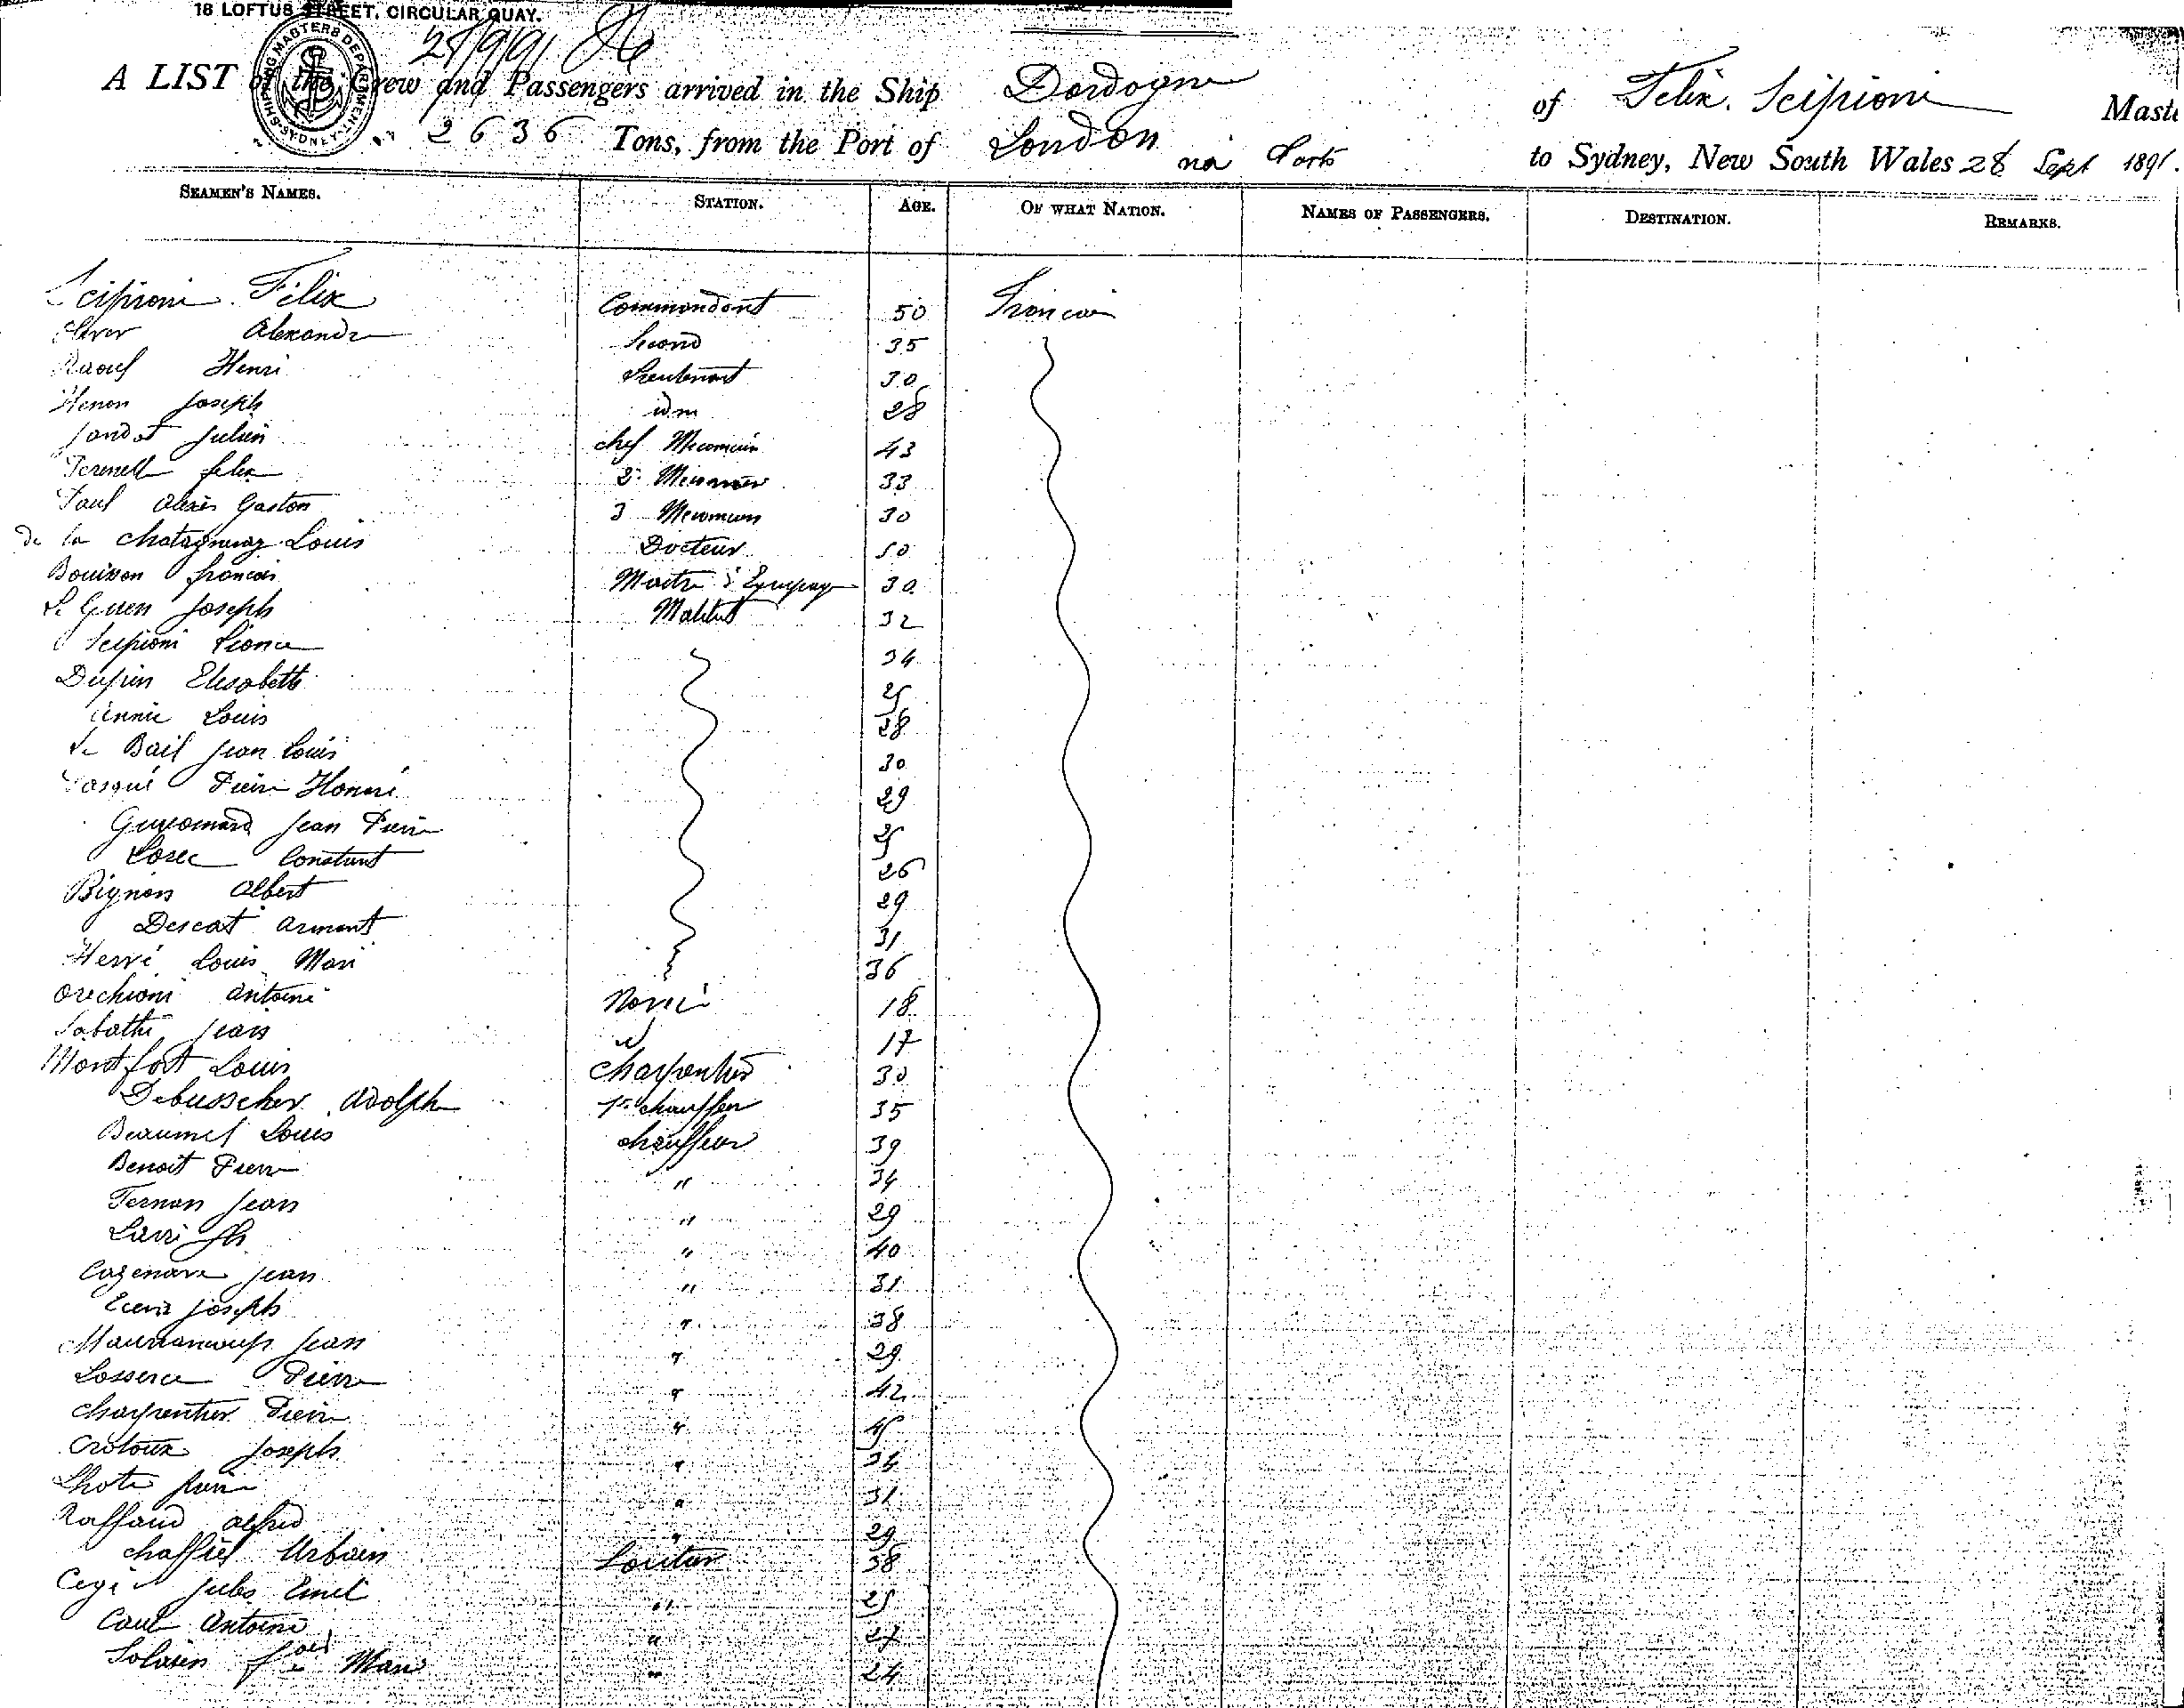 18 LOFTUS STREET, CIRCULAR QUAY.
SHIPPING MASTERS DEPARTMENT SYDNEY
28/9/91
A LIST of the Crew and Passengers arrived in the Ship Dordogne of Felix Scipioni Maste
2636 Tons, from the Port of London via Ports to Sydney, New South Wales 28 Sept 1891.
SEAMEN'S NAMES. STATION. AGE. OF WHAT NATION. NAMES OF PASSENGERS. DESTINATION. REMARKS.
Scipioni Félix Commandant 50 Francais
Alexandre Second 35
Raoul Henri Lieutenant 30
Henon Joseph idm 28
Jandot Julien chef Mecanicien 43
felix 2e Mecanicien 33
Paul Alexis Gaston 3 Mecanicien 30
de la Louis Docteur 50
Bouisson francois Maitre d'Equipage 30
Le Guen Joseph Matelot 32
Scipioni Leonce 34
Dupin Elisabeth 25
Louis 28
Le Bail Jean Louis 30
Pierre Honoré 29
Guyomard Jean Pierre 25
Losec Constant 26
Bignon Albert 29
Descat Armant 31
Hervé Louis Mari 36
Orechioni Antoine Novice 18
Sabathé Jean id 17
Montfort Louis Charpentier 30
Debusscher Adolphe 1er chauffeur 35
Beaumel Louis chauffeur 39
Benoit Pierre " 34
Ternan Jean " 29
" 40
Cazenave Jean " 31
Joseph " 38
Jean " 29
Losserce Pierre " 42
Charpentier Pierre " 45
Crotoux Joseph " 34
Lhote " 31
Raffaud Alfred " 29
Chaffiel Urbain Soutier 38
Jules Emile " 25
Antoine " 27
Solasen Marie " 24